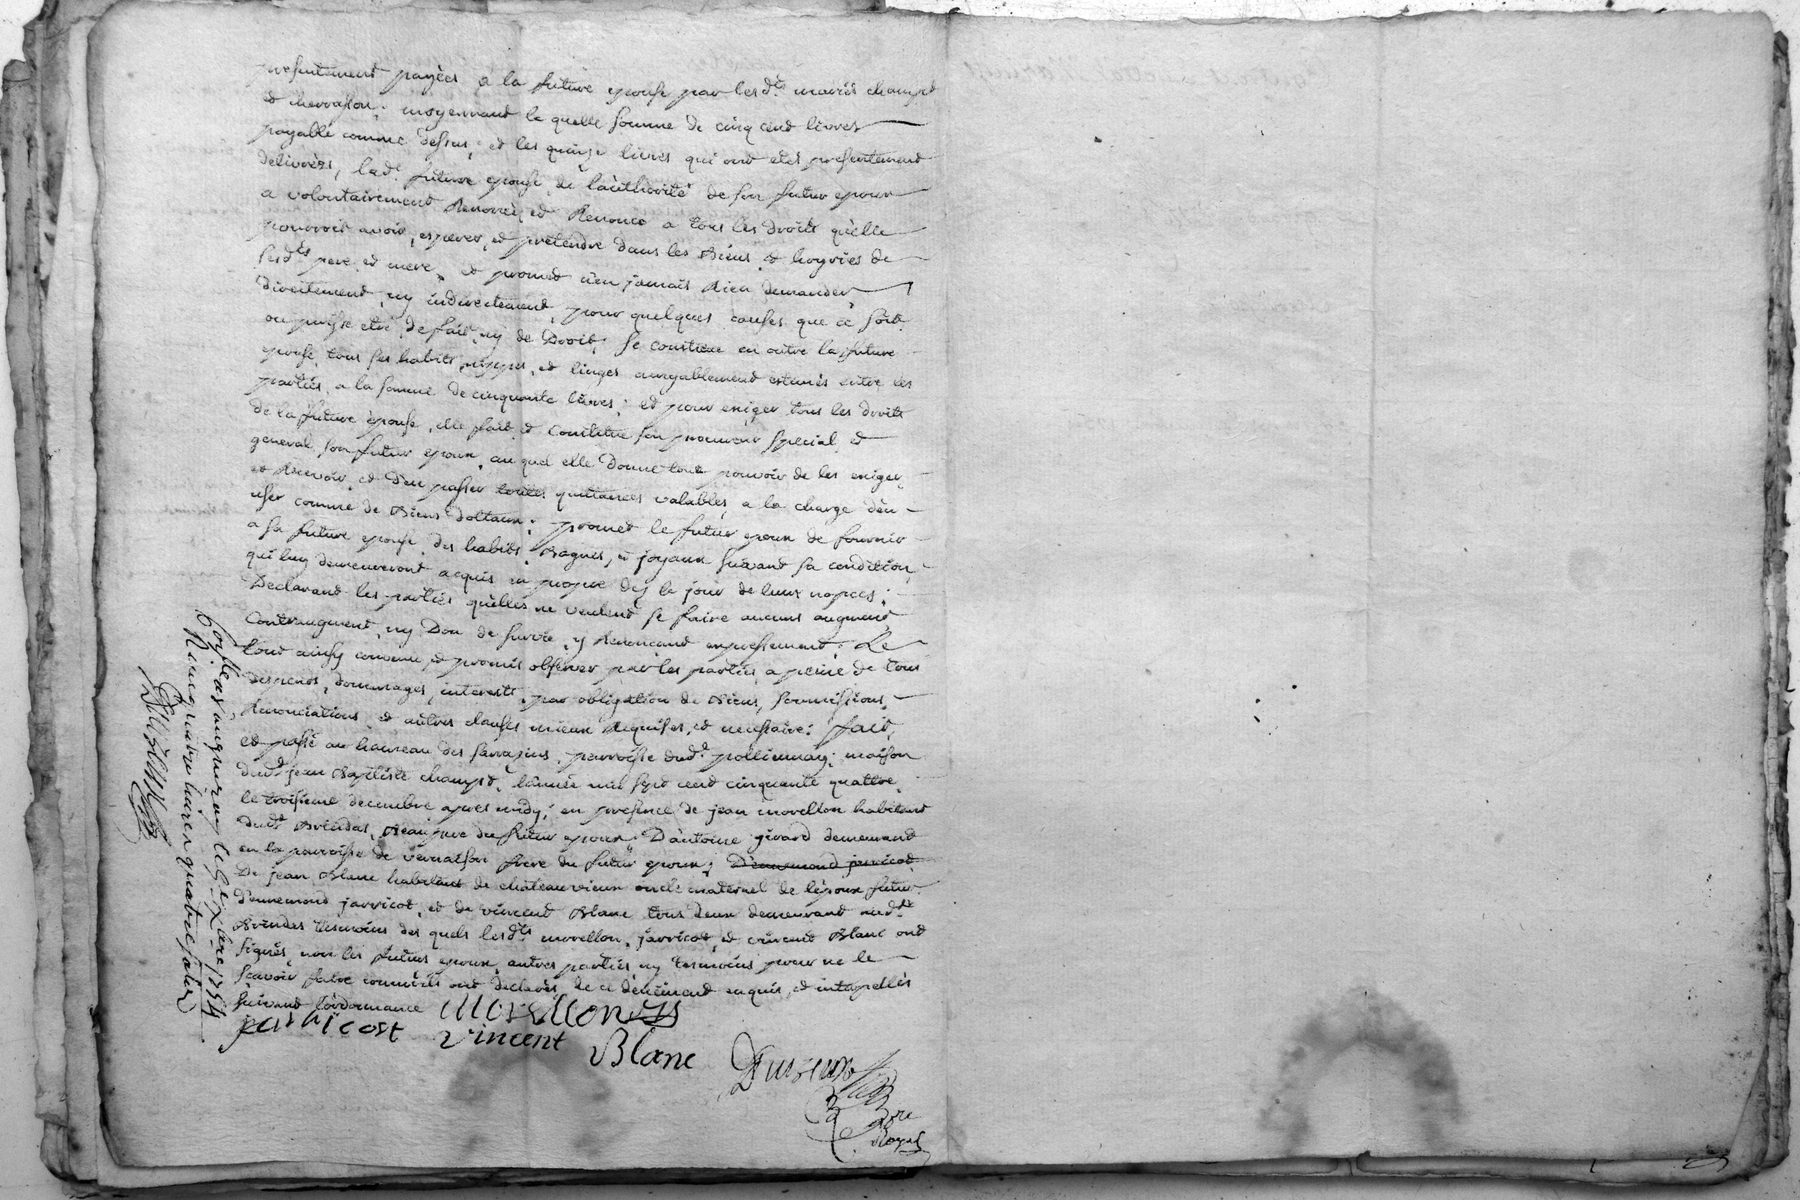 presentement payées a la future epouse par lesd.ts mariés champt
et chervasson; moyennant la quelle somme de cinq cent livres
payable comme dessus, et les quinze livres qui ont etés presentement
delivrées, lad.e future epouse, de l'authorité de son futur epoux
a volontairement Renoncé, et Renonce a tous les droits qu'elle
pourroit avoir, esperer, et pretendre dans les Biens, et hoyries de
sesd.ts pere, et mere, et promet n'en jamais Rien demander,
directement, ny indirectement, pour quelques causes que ce soit
ou puisse etre, de fait, ny de Droit; se constitue en outre la future
epouse, tous ses habits, nippes, et linges amyablement estimés entre les
parties, a la somme de cinquante livres; et pour exiger tous les droits
de la future epouse, elle fait, et constitue son procureur special, et
general, son futur epoux, au quel elle donne tout pouvoir de les exiger,
et Recevoir, et d'en passer toutes quittances valables, a la charge d'en
user comme de Biens dottaux; promet le futur epoux de fournir
a sa future epouse, des habits, Bagues, et joyaux suivant sa condition,
qui luy demeureront acquis en propre des le jour de leurs nopces;
Declarant les parties qu'elles ne veulent se faire aucuns augment,
Contraugment, ny Don de survie, y Renonçant expressement. Le
tout ainsy convenu, et promis observer par les parties, a peine de tous
despends, dommages, interests, par obligation de Biens, soumissions,
Renonciations, et autres clauses mieux Requises, et necessaire; fait,
et passé au hameau des sarrazins, parroisse dud.t pollionnay; maison
dud.t jean Baptiste champt, l'année mil sept cent cinquante quattre,
le troisieme decembre apres midy; en presence de jean morellon habitant
dud.t Brindas, Beaupere du futur epoux; D'antoine girard demeurant
en la parroisse de vernaison frere du futur epoux; D'ennemond jarricot
De jean Blanc habitant de chateauvieux oncle maternel de l'epoux futur
d'ennemond jarricot, et de vincent Blanc tous deux demeurant aud.t
Brindas tesmoins des quels lesd.ts morellon, jarricot, et vincent Blanc ont
signés, non les futurs epoux, autres parties ny tesmoins pour ne le
sçavoir faire comm'ils ont declarés, de ce deüement enquis, et interpellés
suivant l'ordonnance
Morellon
jarricost
vincent
Blanc
Nre
Royal